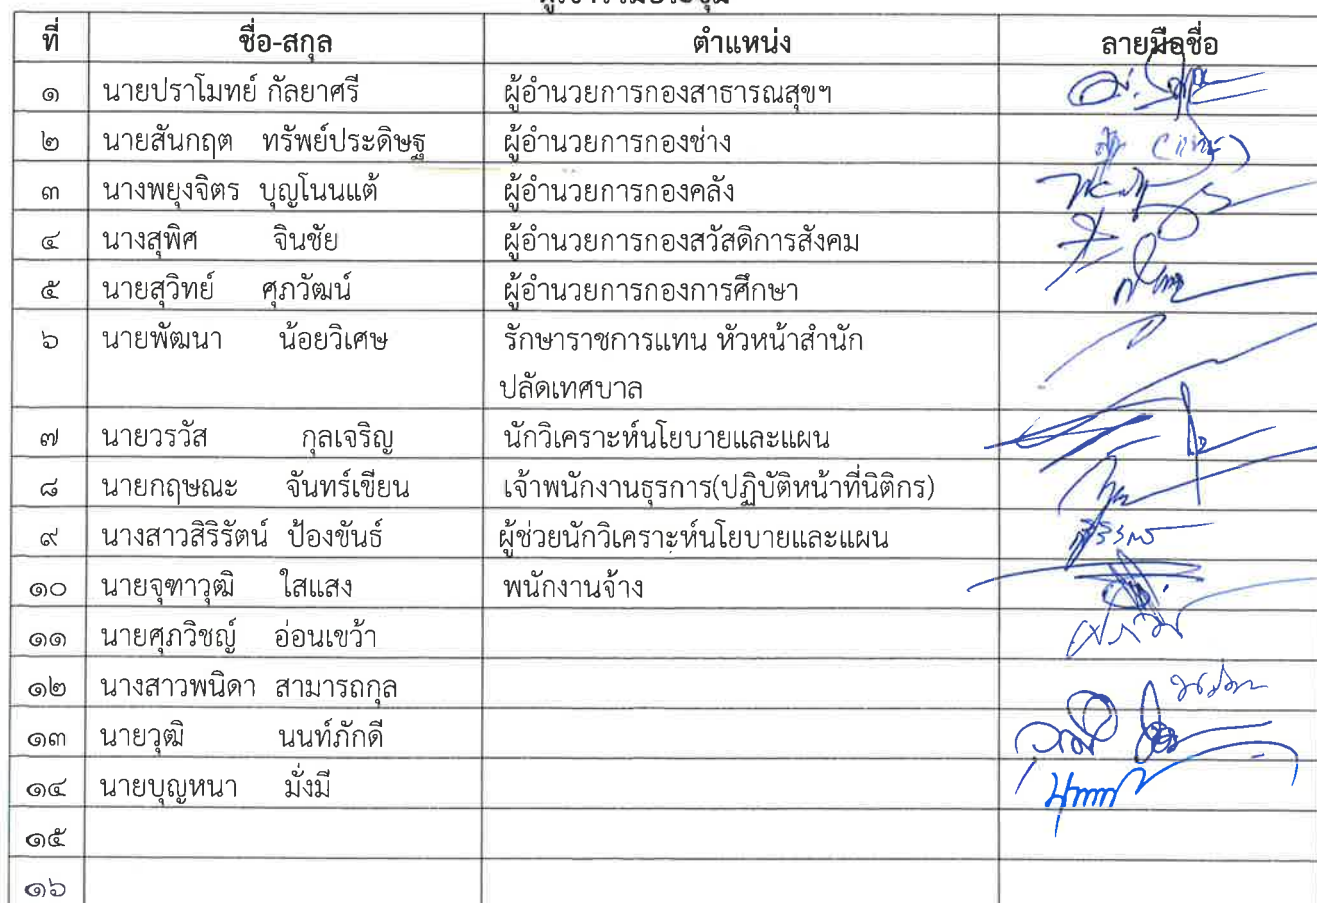 ผู้เข้าร่วมประชุม
ที่ ชื่อ-สกุล ตำแหน่ง ลายมือชื่อ
๑ นายปราโมทย์ กัลยาศรี ผู้อำนวยการกองสาธารณสุขฯ
๒ นายสันกฤต ทรัพย์ประดิษฐ ผู้อำนวยการกองช่าง
๓ นางพยุงจิตร บุญโนนแต้ ผู้อำนวยการกองคลัง
๔ นางสุพิศ จินชัย ผู้อำนวยการกองสวัสดิการสังคม
๕ นายสุวิทย์ ศุภวัฒน์ ผู้อำนวยการกองการศึกษา
๖ นายพัฒนา น้อยวิเศษ รักษาราชการแทน หัวหน้าสำนัก
ปลัดเทศบาล
๗ นายวรวัส กุลเจริญ นักวิเคราะห์นโยบายและแผน
๘ นายกฤษณะ จันทร์เขียน เจ้าพนักงานธุรการ(ปฏิบัติหน้าที่นิติกร)
๙ นางสาวสิริรัตน์ ป้องขันธ์ ผู้ช่วยนักวิเคราะห์นโยบายและแผน
๑๐ นายจุฑาวุฒิ ใสแสง พนักงานจ้าง
๑๑ นายศุภวิชญ์ อ่อนเขว้า
๑๒ นางสาวพนิดา สามารถกุล
๑๓ นายวุฒิ นนท์ภักดี
๑๔ นายบุญหนา มั่งมี
๑๕
๑๖